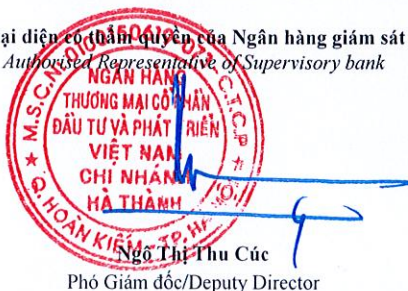 ại diện có thẩm quyền của Ngân hàng giám sát
Authorised Representative of Supervisory bank
NGÂN HÀNG
THƯƠNG MẠI CỔ PHẦN
ĐẦU TƯ VÀ PHÁT TRIỂN
VIỆT NAM
CHI NHÁNH
HÀ THÀNH
Q. HOÀN KIẾM - TP.
Ngô Thị Thu Cúc
Phó Giám đốc/Deputy Director